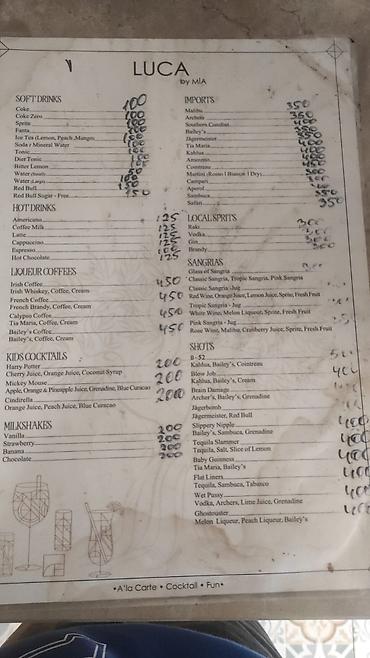 LUCA
by MİA
SOFT DRINKS
Coke 100
Coke Zero 100
Sprite 100
Fanta 100
Ice Tea (Lemon, Peach, Mango)
Soda / Mineral Water 100
Tonic
Diet Tonic
Bitter Lemon
Water (Small) 50
Water (Large) 100
Red Bull 150
Red Bull Sugar - Free 150
HOT DRINKS
Americano 125
Coffee Milk 125
Latte 125
Cappuccino 125
Espresso 100
Hot Chocolate 125
LIQUEUR COFFEES
Irish Coffee 450
Irish Whiskey, Coffee, Cream
French Coffee 450
French Brandy, Coffee, Cream
Calypso Coffee 450
Tia Maria, Coffee, Cream
Bailey's Coffee 450
Bailey's, Coffee, Cream
KIDS COCKTAILS
Harry Potter 200
Cherry Juice, Orange Juice, Coconut Syrup
Mickey Mouse 200
Apple, Orange & Pineapple Juice, Grenadine, Blue Curacao
Cindirella 200
Orange Juice, Peach Juice, Blue Curacao
MILKSHAKES
Vanilla 200
Strawberry 200
Banana 200
Chocolate 200
IMPORTS
Malibu 350
Archers 350
Southern Comfort
Bailey's
Jägermeister
Tia Maria
Kahlua
Amaretto
Cointreau
Martini (Rosso | Bianco | Dry)
Campari
Aperol
Sambuca
Safari 350
LOCAL SPRITS
Rakı
Vodka
Gin
Brandy
SANGRIAS
Glass of Sangria
Classic Sangria, Tropic Sangria, Pink Sangria
Classic Sangria - Jug
Red Wine, Orange Juice, Lemon Juice, Sprite, Fresh Fruit
Tropic Sangria - Jug
White Wine, Melon Liqueur, Sprite, Fresh Fruit
Pink Sangria - Jug
Rose Wine, Malibu, Cranberry Juice, Sprite, Fresh Fruit
SHOTS
B - 52
Kahlua, Bailey's, Cointreau
Blow Job
Kahlua, Bailey's, Cream
Brain Damage
Archer's, Bailey's, Grenadine
Jägerbomb
Jägermeister, Red Bull
Slippery Nipple 400
Bailey's, Sambuca, Grenadine
Tequila Slammer 400
Tequila, Salt, Slice of Lemon
Baby Guinness 400
Tia Maria, Bailey's
Flat Liners 400
Tequila, Sambuca, Tabasco
Wet Pussy 400
Vodka, Archers, Lime Juice, Grenadine
Ghostbuster 400
Melon Liqueur, Peach Liqueur, Bailey's
•A'la Carte • Cocktail • Fun•